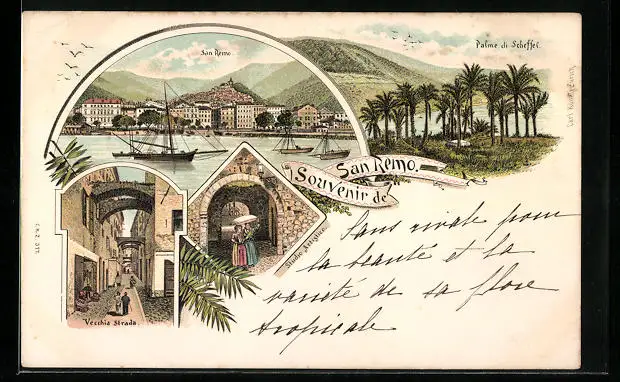 San Remo.
Palme di Scheffel.
Souvenir de
San Remo.
Vecchia Strada.
Studio Artistico
Sans rivale pour
la beauté et la
variété de sa flore
tropicale